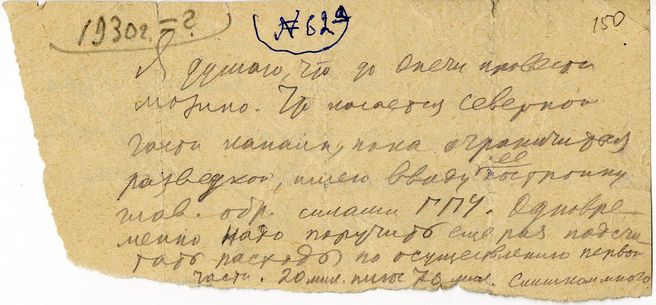 1930г. = ?
№ 62а
150
Я думаю, что до Онеги провести
можно. Что касается северной
части канала, пока ограничиться
разведкой, имею ввиду ее постройку
глав. обр. силами ГПУ. Одновре-
менно надо поручить еще раз подсчи-
тать расходы по осуществлению первой
части. 20 мил. плюс 70 мил. Слишком много